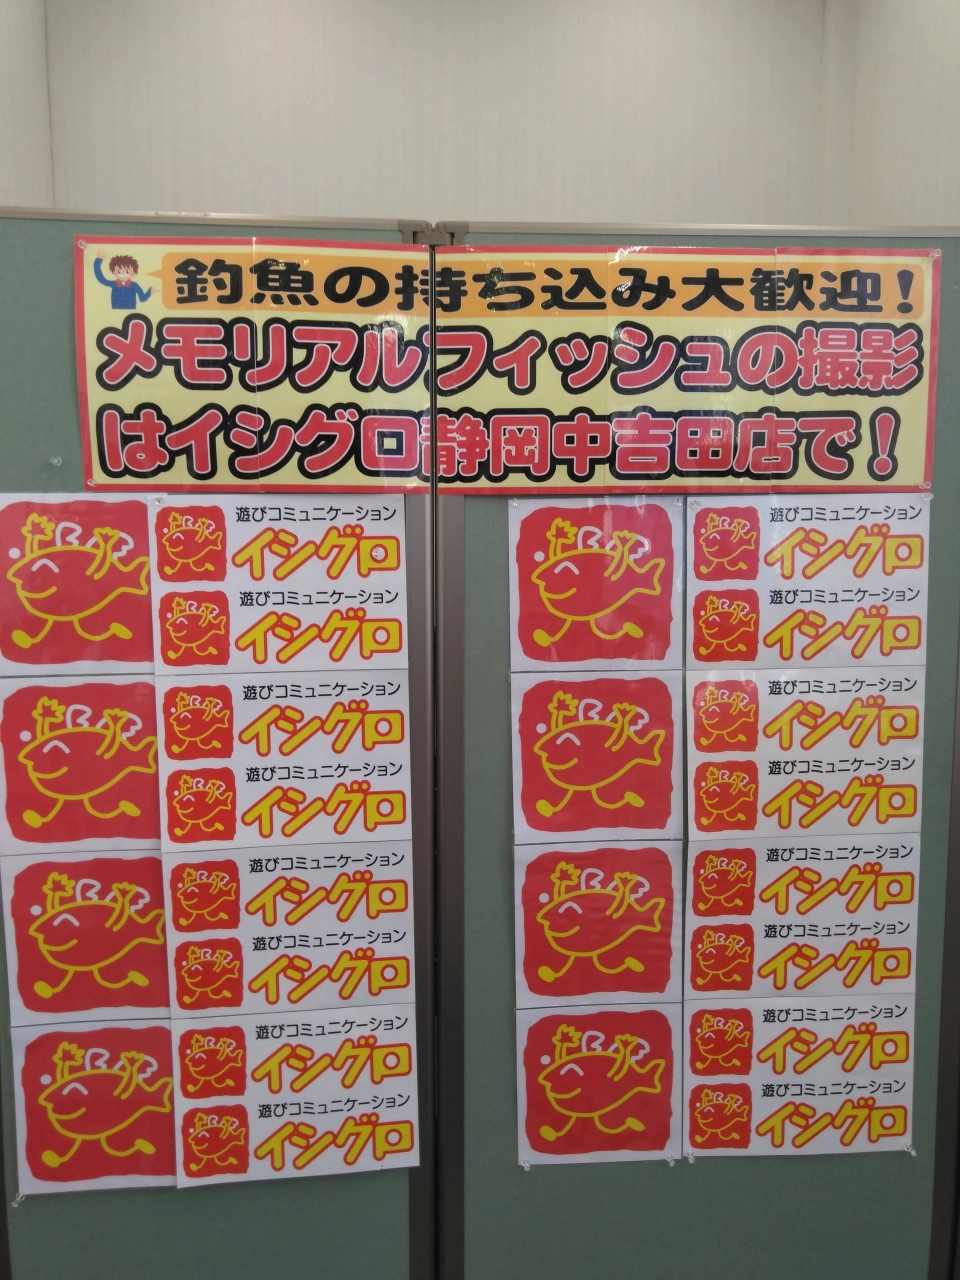 釣魚の持ち込み大歓迎！
メモリアルフィッシュの撮影
はイシグロ静岡中吉田店で！
遊びコミュニケーション
イシグロ
遊びコミュニケーション
イシグロ
遊びコミュニケーション
イシグロ
遊びコミュニケーション
イシグロ
遊びコミュニケーション
イシグロ
遊びコミュニケーション
イシグロ
遊びコミュニケーション
イシグロ
遊びコミュニケーション
イシグロ
遊びコミュニケーション
イシグロ
遊びコミュニケーション
イシグロ
遊びコミュニケーション
イシグロ
遊びコミュニケーション
イシグロ
遊びコミュニケーション
イシグロ
遊びコミュニケーション
イシグロ
遊びコミュニケーション
イシグロ
遊びコミュニケーション
イシグロ